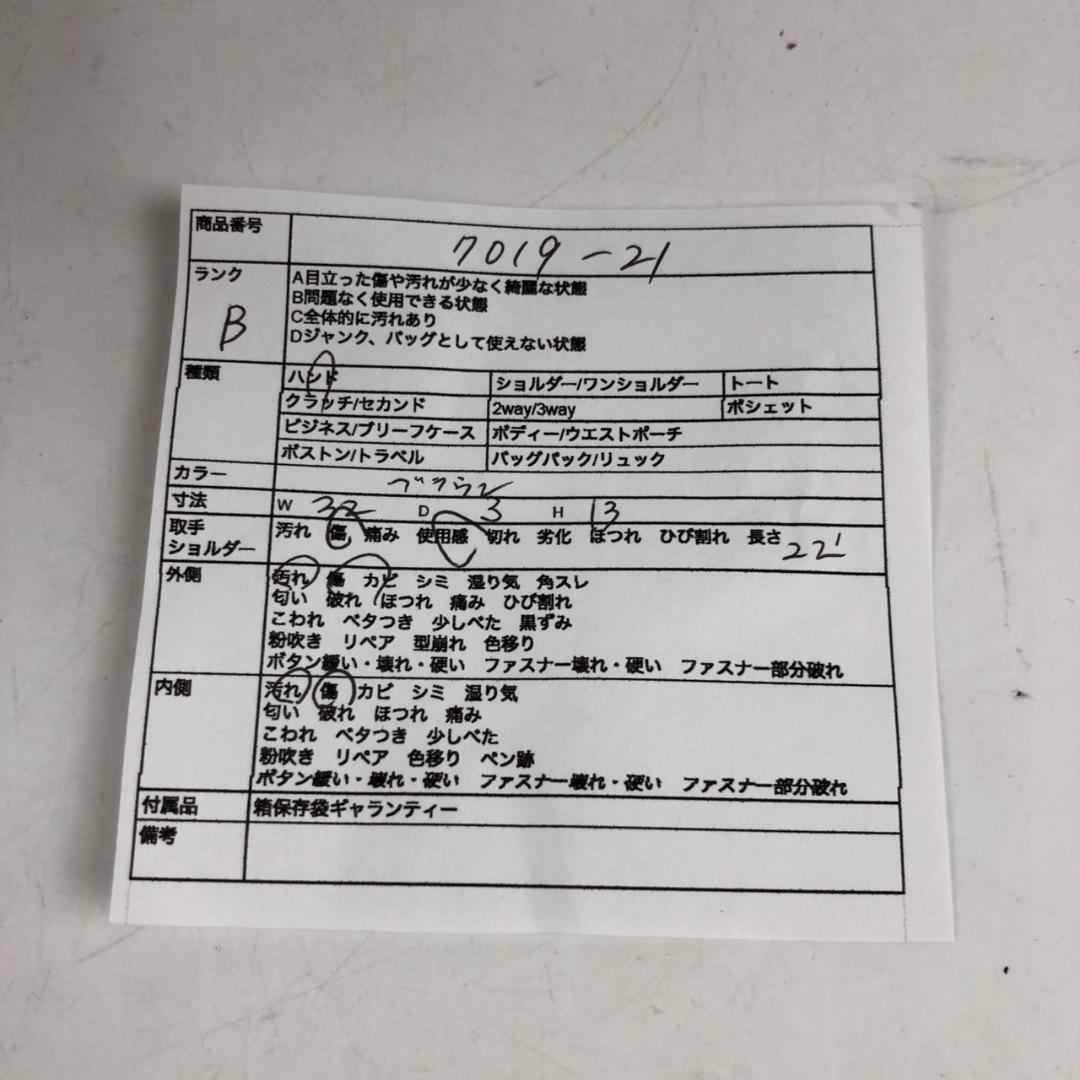 商品番号 7019-21
ランク B
A目立った傷や汚れが少なく綺麗な状態
B問題なく使用できる状態
C全体的に汚れあり
Dジャンク、バッグとして使えない状態
種類 ハンド ショルダー/ワンショルダー トート
クラッチ/セカンド 2way/3way ポシェット
ビジネス/ブリーフケース ボディー/ウエストポーチ
ボストン/トラベル バッグパック/リュック
カラー ブラウン
寸法 W 32 D 3 H 13
取手 汚れ 傷 痛み 使用感 切れ 劣化 ほつれ ひび割れ 長さ 22
ショルダー
外側 汚れ 傷 カビ シミ 湿り気 角スレ
匂い 破れ ほつれ 痛み ひび割れ
こわれ ベタつき 少しべた 黒ずみ
粉吹き リペア 型崩れ 色移り
ボタン緩い・壊れ・硬い ファスナー壊れ・硬い ファスナー部分破れ
内側 汚れ 傷 カビ シミ 湿り気
匂い 破れ ほつれ 痛み
こわれ ベタつき 少しべた
粉吹き リペア 色移り ペン跡
ボタン緩い・壊れ・硬い ファスナー壊れ・硬い ファスナー部分破れ
付属品 箱保存袋ギャランティー
備考